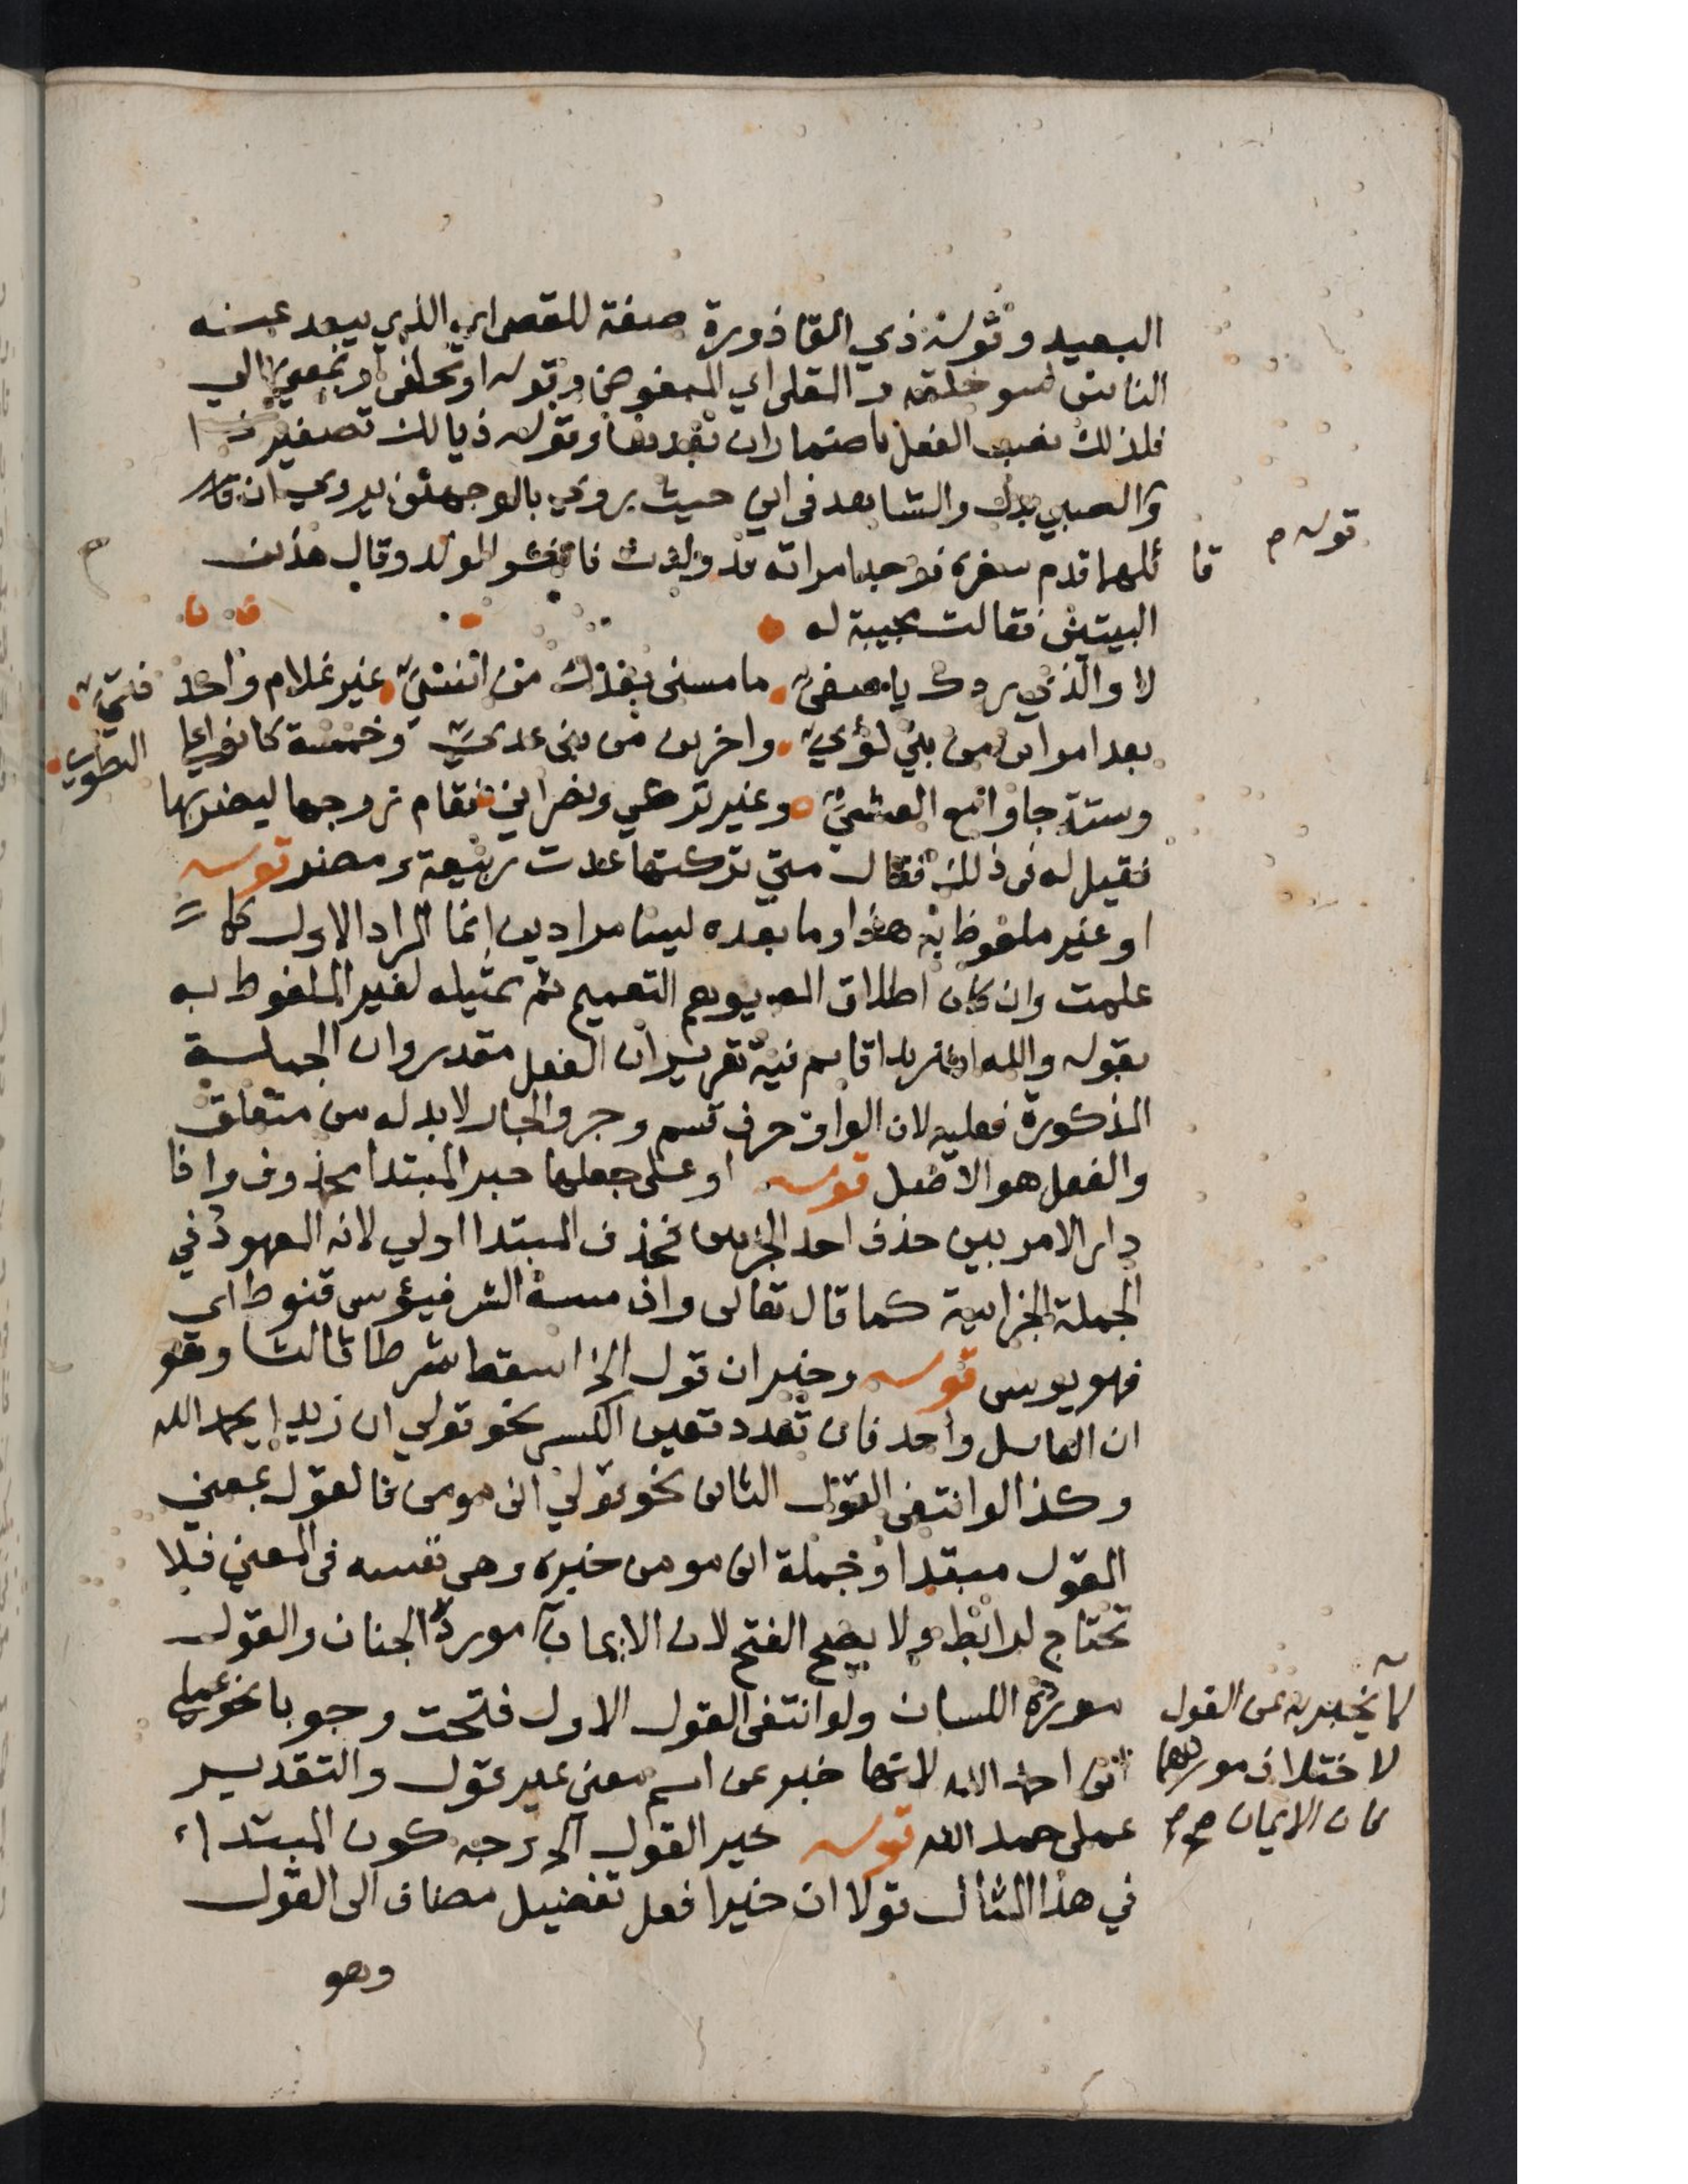 البعيد وقوله ذي القاذورة صفة للقصي اي الذي يبعد عنه
الناس لسو خلقه و المقلي اي المبغوض وقوله او تحلفي او بمعني الي
فلذلك نصب الفعل باضمار ان بعدها وقوله ذيالك تصغير ذا
والصبي بدل والشاهد في اني حيث يروي بالوجهين يروي ان قا
ئلهما قدم سفره فوجد امراته قد ولدت فانكر الولد وقال هذين
قوله م قا
البيتين فقالت مجيبة له
لا والذي ردك يا صفي ما مسني بعدك من انسي غير غلام واحد فتي
بعد امراين من بني لؤي واخرين من بني عدي وخمسة كانوا علي الطوي
وستة جاوا مع العشي وغير تركي ونصراني فقام زوجها ليضربها
فقيل له في ذلك فقال متي تركتها عدت ربيعة ومضر قوله
او غير ملفوظ به هذا وما بعده ليسا مرادين انما المراد الاول كما
علمت وان كان اطلاق المص يوهم التعميم ثم تمثيله لغير الملفوظ به
بقوله والله ان زيدا قايم فيه تقرير ان الفعل مقدر وان الجملة
المذكورة فعليه لان الواو حرف قسم وجر والجار لابد له من متعلق
والفعل هو الاصل قوله او علي جعلها خبر المبتدا محذوف واذا
دار الامر بين حذف احد الجزين فحذف المبتدا اولي لانه المعهود في
الجملة الجزاية كما قال تعالي وان مسه الشر فيؤس قنوط اي
فهو يوس قوله وخبر ان قول الخ اسقط شرطا ثالثا وهو
ان القايل واحد فان تعدد تعين الكسر نحو قولي ان زيدا يحمد الله
وكذا لو انتفي القول الثاني نحو قولي اني مومن فالقول بمعني
القول مبتدا وجملة اني مومن خبره وهي نفسه في المعني فلا
تحتاج لرابط ولا يصح الفتح لان الايمان مورده الجنان والقول
مورده اللسان ولو انتفي القول الاول فتحت وجوبا نحو عملي
اني احمد الله لانها خبر عن اسم معني غير قول والتقدير
عملي حمد الله قوله خير القول الخ وجه كون المبتدا
في هذا المثال قولا ان خيرا افعل تفضيل مضاف الي القول
لا يخبر به عن القول
لاختلاف موردهما
فان الايمان صح
وهو